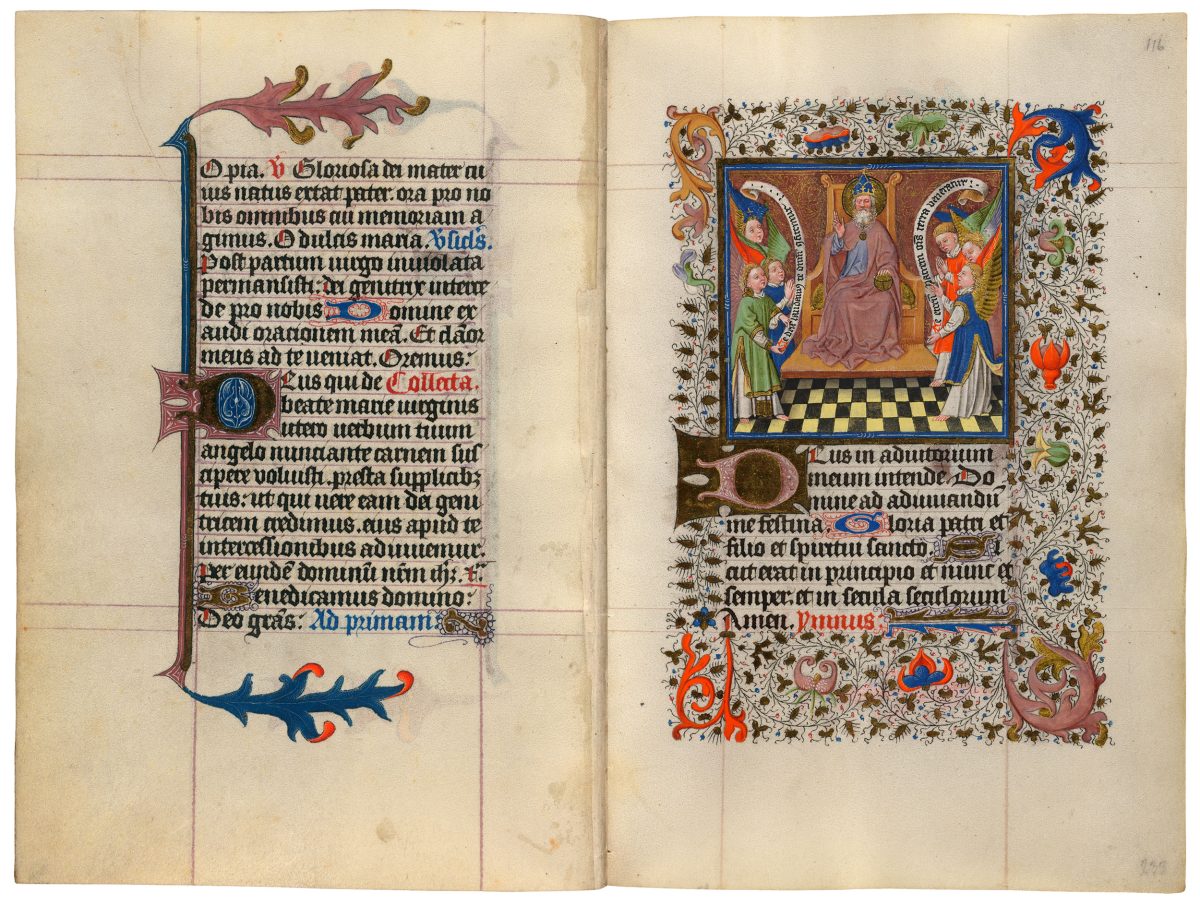 O pia. V̉ Gloriosa dei mater cu
ius natus extat pater. ora pro no
bis omnibus qui memoriam a
gimus. O dulcis maria. Vsicl's.
Post partum uirgo inuiolata
permansisti: dei genitrix interce
de pro nobis Domine ex
audi oracionem meā. Et clāor
meus ad te ueniat. Oremus:
Deus qui de Collecta.
beate marie uirginis
utero uerbum tuum
angelo nunciante carnem sus
cipere uoluisti. presta supplicibz
tuis: ut qui uere eam dei geni
tricem credimus. eius apud te
intercessionibus adiuuemur.
Per eundē dominū nr̄m ihz̄.
Benedicamus domino:
Deo grās: Ad primam
116
Te dm̄ laudamus te dnm̄ cōfitemur:
Te eternū patrem oīs terra ueneratur:
Deus in adiutorium
meum intende. Do
mine ad adiuuandū
me festina. Gloria patri et
filio et spiritui sancto. Si
cut erat in principio et nunc et
semper. et in secula seculorum
Amen. Ymnus: